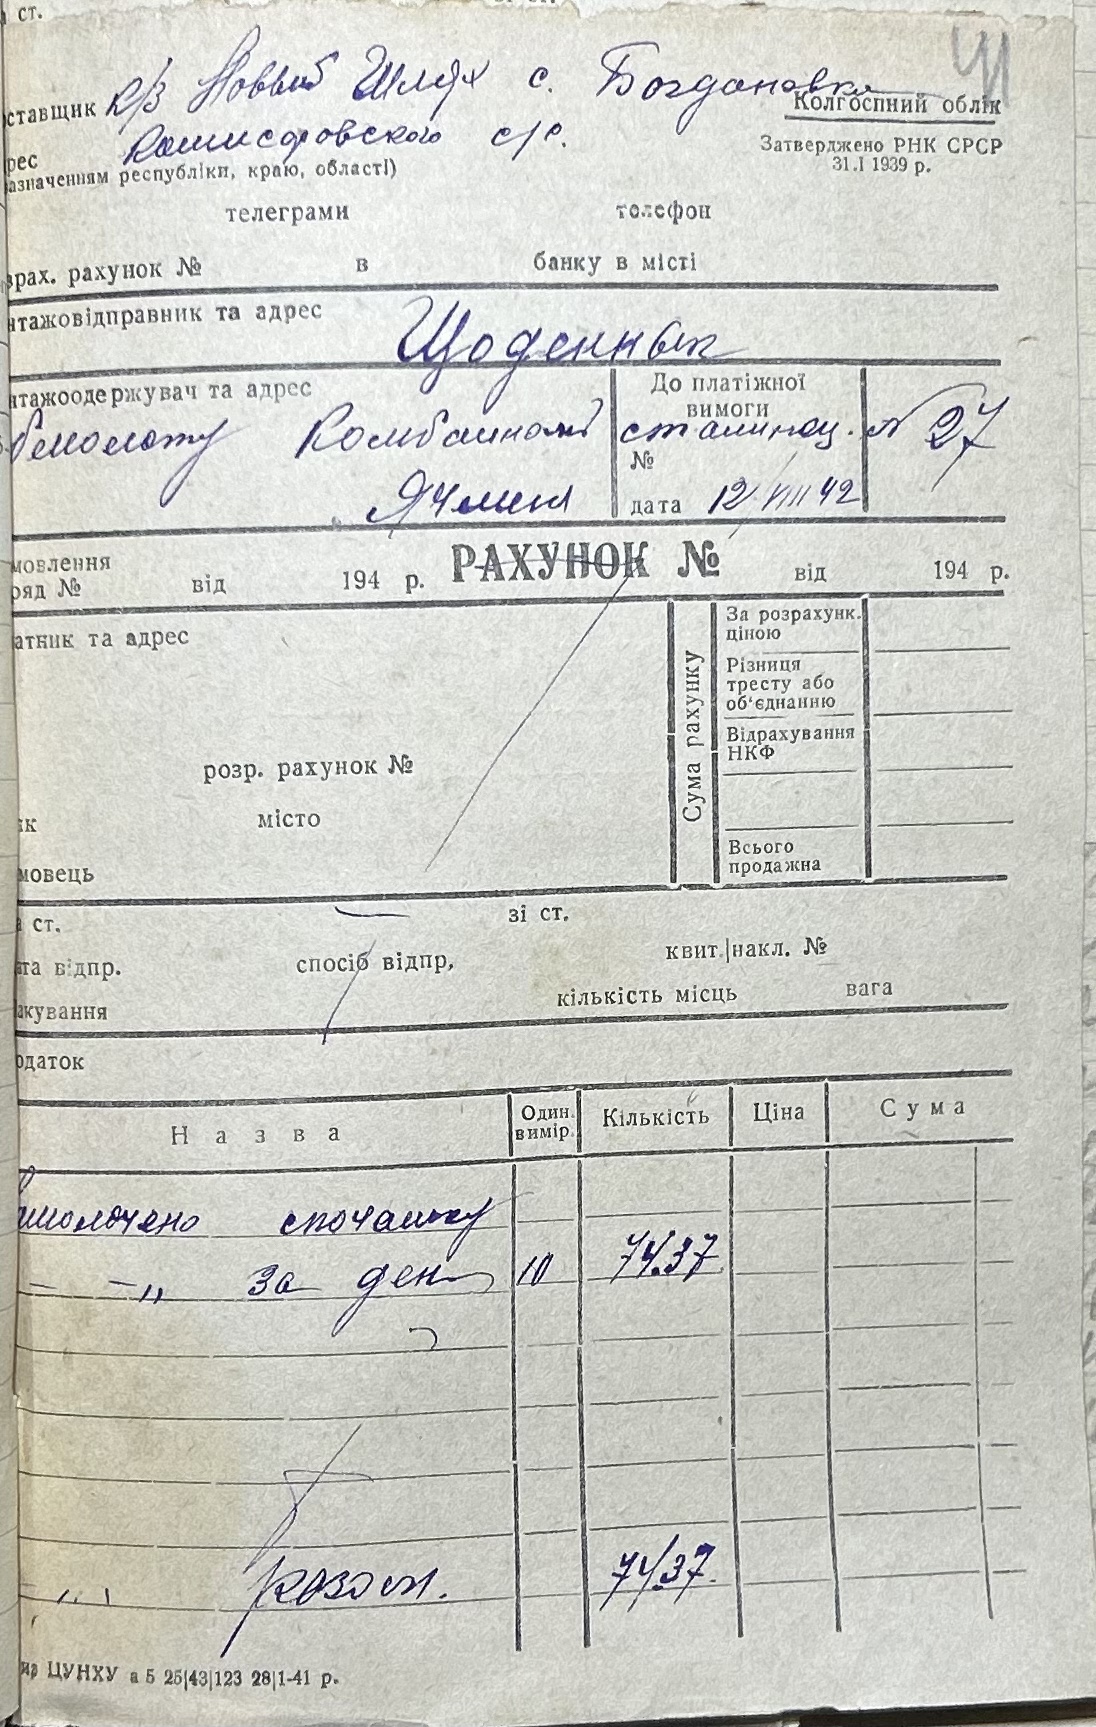 ст.
41
ставщик к/з Новый Шлях с. Богдановка
Колгоспний облік
рес Комисаровского с/р.
Затверджено РНК СРСР
31.I 1939 р.
азначенням республіки, краю, області)
телеграми телефон
зрах. рахунок № в банку в місті
нтажовідправник та адрес
Щоденнык
нтажоодержувач та адрес
До платіжної
вимоги
бмолоту Комбайном сталинец. № 27
№
Ячменя
дата 12/VIII 42
мовлення
ряд № від 194 р. РАХУНОК № від 194 р.
атник та адрес
Сума рахунку
За розрахунк.
ціною
Різниця
тресту або
об'єднанню
Відрахування
НКФ
розр. рахунок №
нк місто
Всього
продажна
мовець
а ст. зі ст.
ата відпр. спосіб відпр, квит.|накл. №
акування кількість місць вага
одаток
Назва Один. вимір. Кількість Ціна Сума
молочено спочатку
— —„ за ден 10 74.37
„ Разом. 74.37.
ир ЦУНХУ а 5 25|43|123 28|1-41 р.